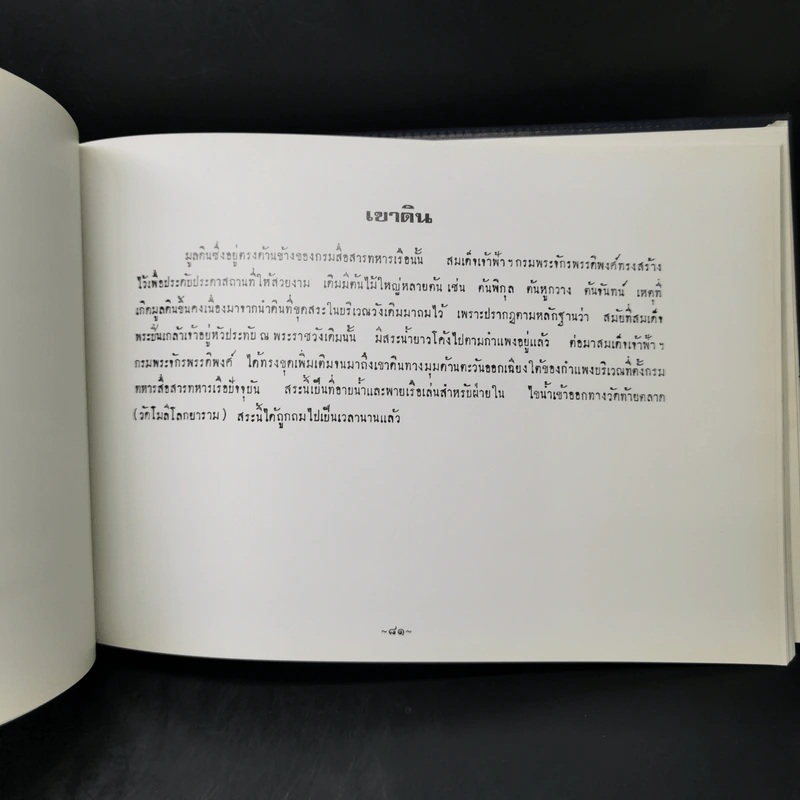 เขาดิน
มูลดินซึ่งอยู่ตรงด้านข้างของกรมสื่อสารทหารเรือนั้น สมเด็จเจ้าฟ้าฯกรมพระจักรพรรดิพงศ์ทรงสร้าง
ไว้เพื่อประดับประดาสถานที่ให้สวยงาม เดิมมีต้นไม้ใหญ่หลายต้น เช่น ต้นพิกุล ต้นหูกวาง ต้นจันทน์ เหตุที่
เกิดมูลดินขึ้นคงเนื่องมาจากนำดินที่ขุดสระในบริเวณวังเดิมมาถมไว้ เพราะปรากฏตามหลักฐานว่า สมัยที่สมเด็จ
พระปิ่นเกล้าเจ้าอยู่หัวประทับ ณ พระราชวังเดิมนั้น มีสระน้ำยาวโค้งไปตามกำแพงอยู่แล้ว ต่อมาสมเด็จเจ้าฟ้าฯ
กรมพระจักรพรรดิพงศ์ ได้ทรงขุดเพิ่มเติมจนมาถึงเขาดินทางมุมด้านตะวันออกเฉียงใต้ของกำแพงบริเวณที่ตั้งกรม
ทหารสื่อสารทหารเรือปัจจุบัน สระนี้เป็นที่อาบน้ำและพายเรือเล่นสำหรับฝ่ายใน ไขน้ำเข้าออกทางวัดท้ายตลาด
(วัดโมลีโลกยาราม) สระนี้ได้ถูกถมไปเป็นเวลานานแล้ว
~๘๑~